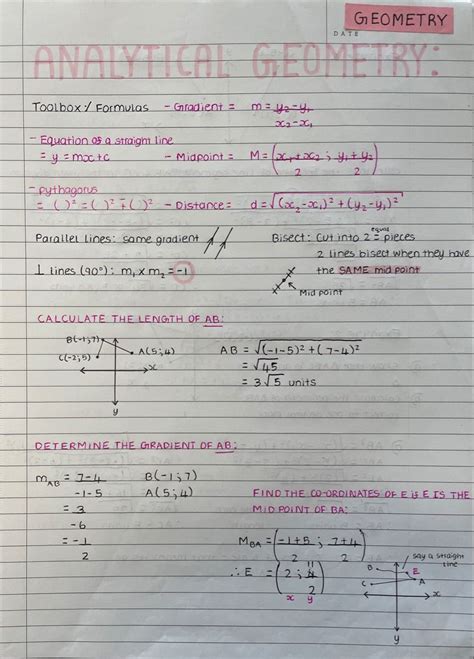 GEOMETRY
DATE
ANALYTICAL GEOMETRY:
Toolbox / Formulas - Gradient = m = y₂ - y₁
x₂ - x₁
- Equation of a straight line
= y = mx + c - Midpoint = M = (x₁ + x₂ ; y₁ + y₂)
2 2
- pythagorus
= ( )² = ( )² + ( )² - Distance = d = √(x₂ - x₁)² + (y₂ - y₁)²
Parallel lines: same gradient
Bisect: Cut into 2 equal pieces
2 lines bisect when they have
the SAME mid point
⊥ lines (90°): m₁ x m₂ = -1
Mid point
CALCULATE THE LENGTH OF AB:
B(-1;7)
A(5;4)
C(-2;5)
x
y
AB = √(-1-5)² + (7-4)²
= √45
= 3√5 units
DETERMINE THE GRADIENT OF AB:
m_AB = 7-4
-1-5
= 3
-6
= -1
2
B(-1;7)
A(5;4)
FIND THE CO-ORDINATES OF E IF E IS THE
MID POINT OF BA:
M_BA = (-1+5 ; 7+4)
2 2
∴ E = (2 ; 11)
2
x y
say a straight
line
B
E
A
C
x
y